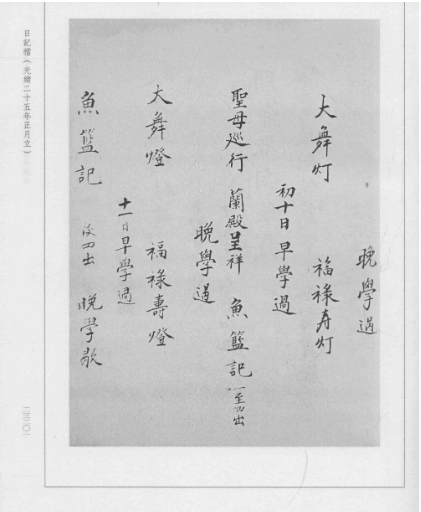 晚學過
大舞灯 福祿寿灯
初十日早學過
聖母巡行 蘭殿呈祥 魚籃記 一至四出
晚學過
大舞燈 福祿壽燈
十一日早學過
魚籃記 後四出 晚學歇
日記檔（光緒二十五年正月立）